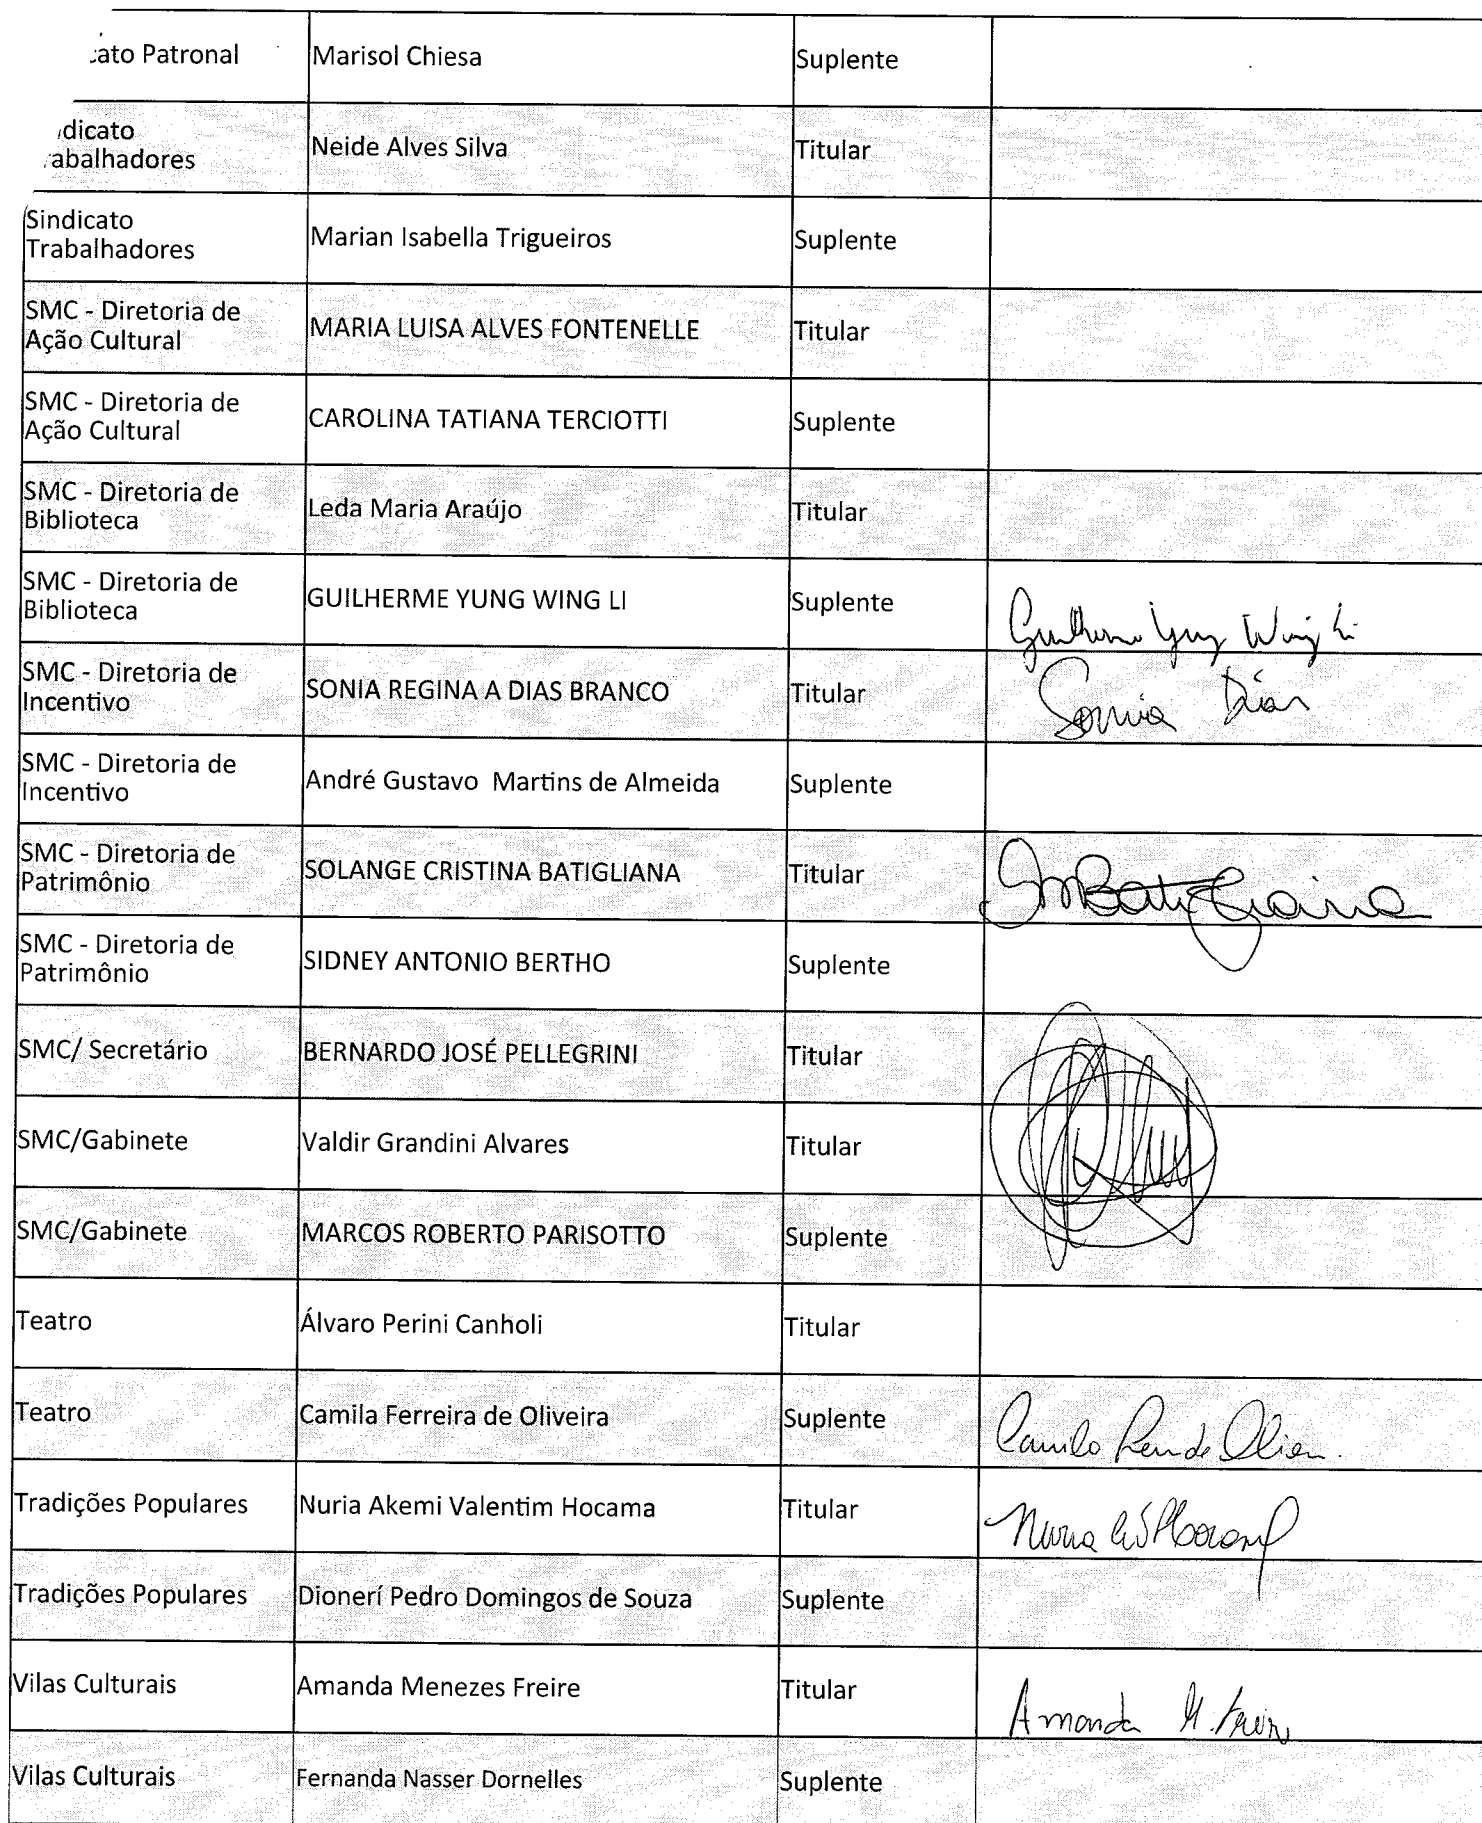 cato Patronal Marisol Chiesa Suplente
dicato
abalhadores Neide Alves Silva Titular
Sindicato
Trabalhadores Marian Isabella Trigueiros Suplente
SMC - Diretoria de
Ação Cultural MARIA LUISA ALVES FONTENELLE Titular
SMC - Diretoria de
Ação Cultural CAROLINA TATIANA TERCIOTTI Suplente
SMC - Diretoria de
Biblioteca Leda Maria Araújo Titular
SMC - Diretoria de
Biblioteca GUILHERME YUNG WING LI Suplente Guilherme Yung Wing Li
SMC - Diretoria de
Incentivo SONIA REGINA A DIAS BRANCO Titular Sonia Dias
SMC - Diretoria de
Incentivo André Gustavo Martins de Almeida Suplente
SMC - Diretoria de
Patrimônio SOLANGE CRISTINA BATIGLIANA Titular
SMC - Diretoria de
Patrimônio SIDNEY ANTONIO BERTHO Suplente
SMC/ Secretário BERNARDO JOSÉ PELLEGRINI Titular
SMC/Gabinete Valdir Grandini Alvares Titular
SMC/Gabinete MARCOS ROBERTO PARISOTTO Suplente
Teatro Álvaro Perini Canholi Titular
Teatro Camila Ferreira de Oliveira Suplente Camila
Tradições Populares Nuria Akemi Valentim Hocama Titular Nuria
Tradições Populares Dionerí Pedro Domingos de Souza Suplente
Vilas Culturais Amanda Menezes Freire Titular Amanda M. Freire
Vilas Culturais Fernanda Nasser Dornelles Suplente